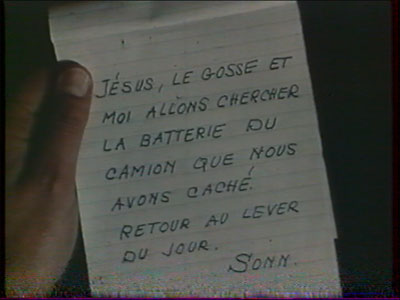 JÉSUS, LE GOSSE ET
MOI ALLONS CHERCHER
LA BATTERIE DU
CAMION QUE NOUS
AVONS CACHÉ.
RETOUR AU LEVER
DU JOUR.
SONN.